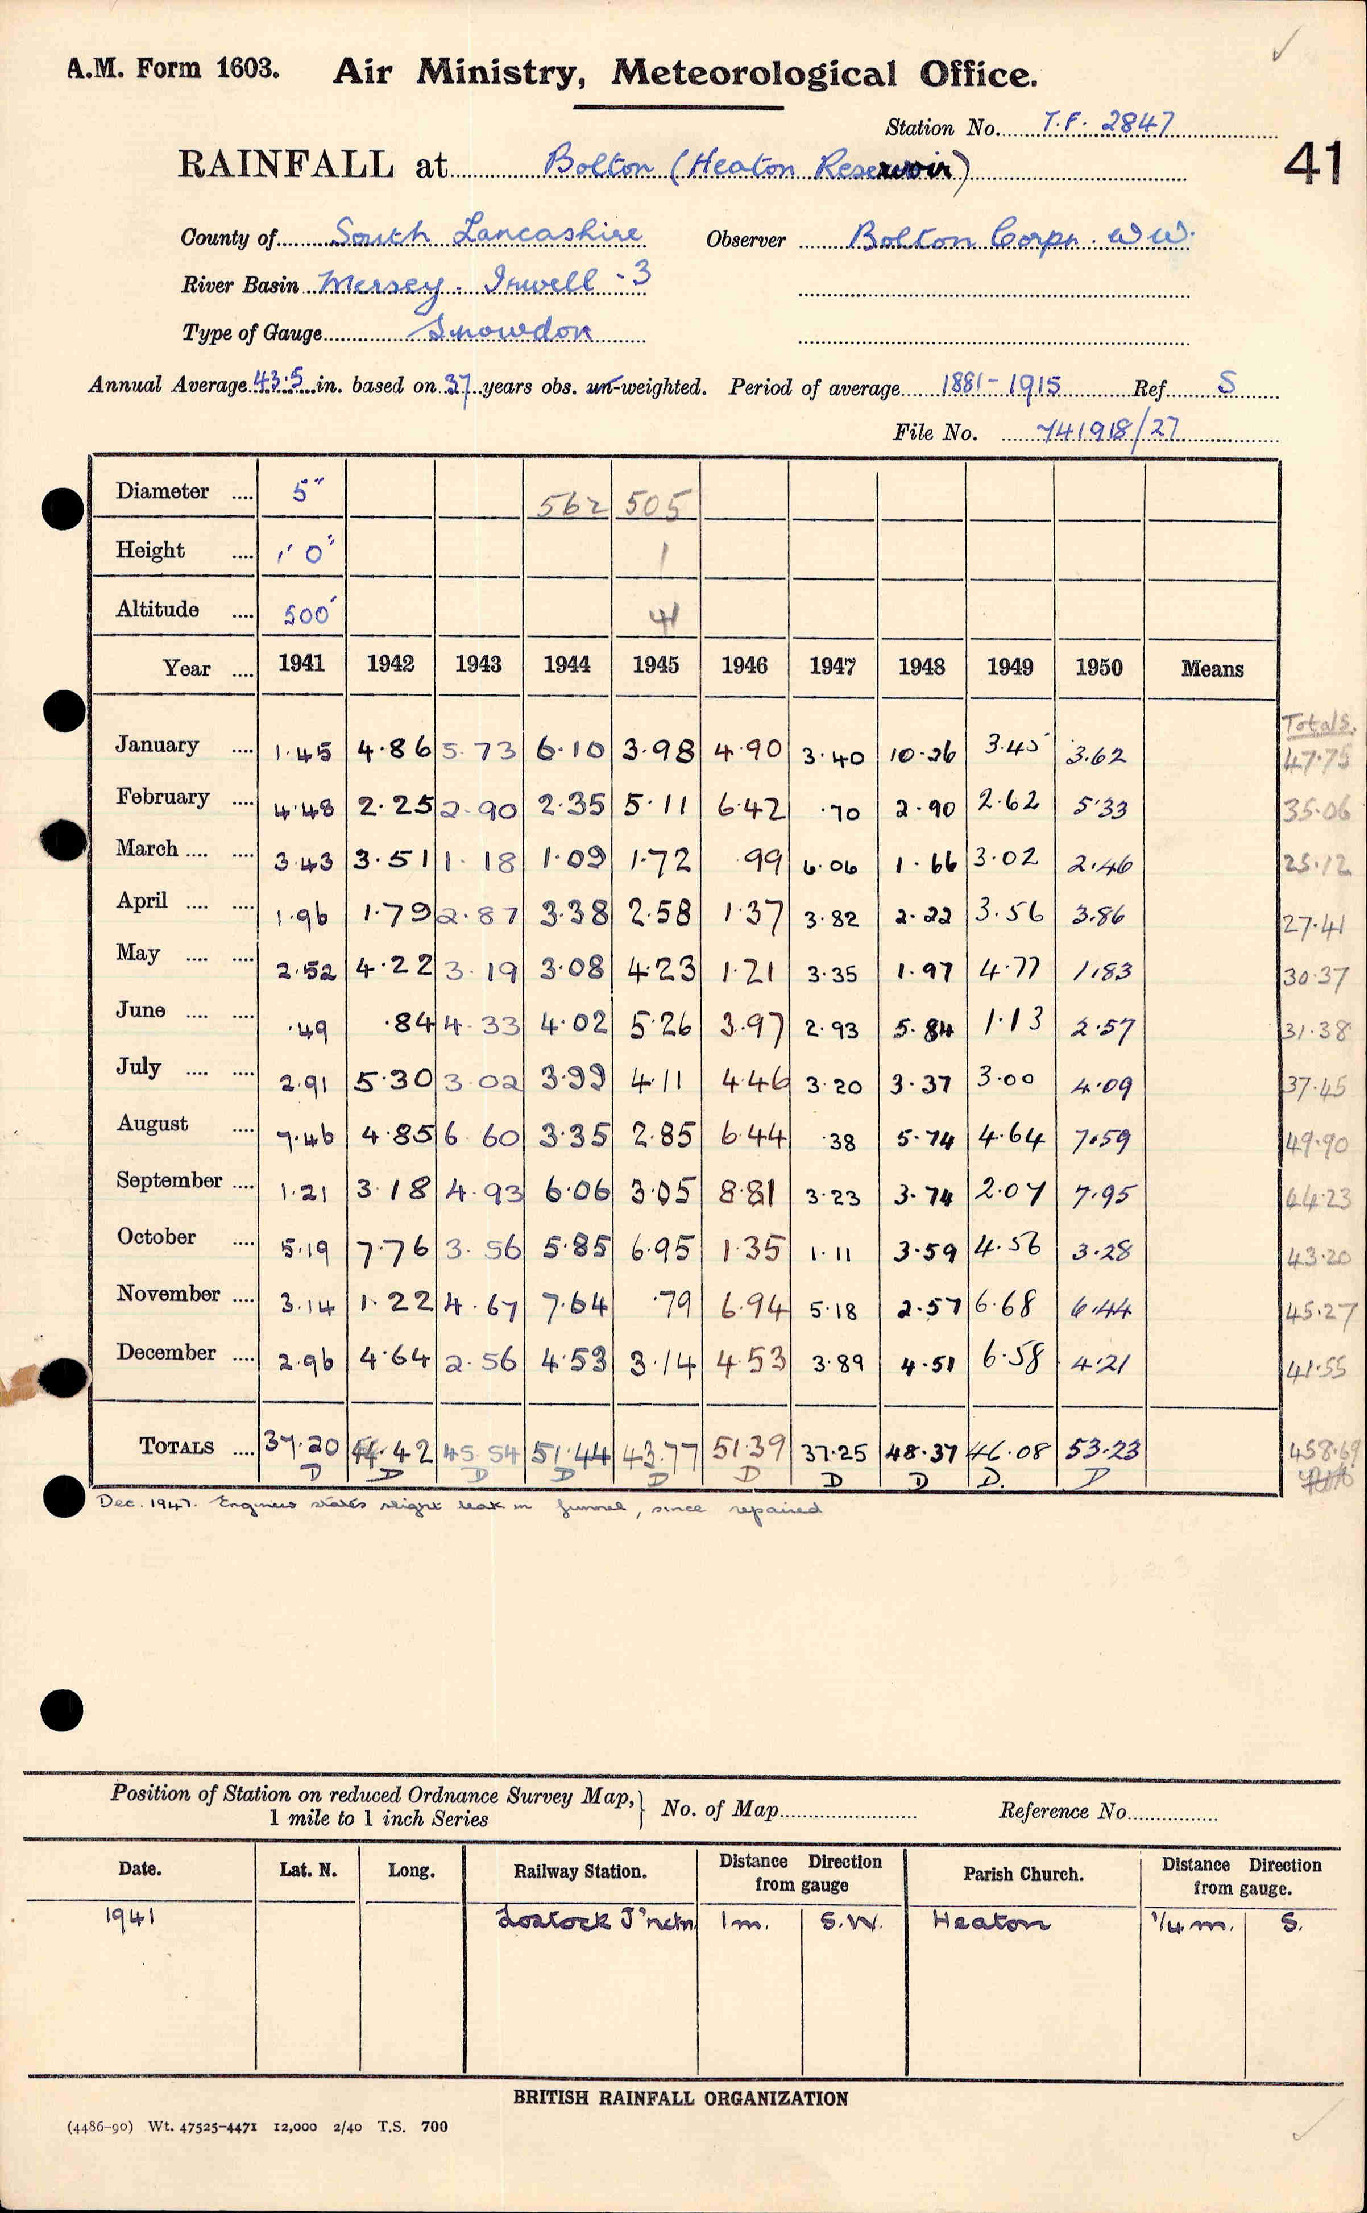 A.M. Form 1603. Air Ministry, Meteorological Office.
Station No. T.F. 2847
RAINFALL at Bolton (Heaton Reservoir) 41
County of South Lancashire Observer Bolton Corpn. W.W.
River Basin Mersey. Irwell - 3
Type of Gauge Snowdon
Annual Average 43.5 in. based on 37 years obs. un-weighted. Period of average 1881-1915 Ref. S
File No. 741918/27
Diameter .... 5" 562 505
Height .... 1' 0" 1
Altitude .... 500' 41
Year .... 1941 1942 1943 1944 1945 1946 1947 1948 1949 1950 Means
Totals.
January .... 1.45 4.86 5.73 6.10 3.98 4.90 3.40 10.26 3.45 3.62 47.75
February .... 4.48 2.25 2.90 2.35 5.11 6.42 .70 2.90 2.62 5.33 35.06
March .... .... 3.43 3.51 1.18 1.09 1.72 .99 6.06 1.66 3.02 2.46 25.12
April .... .... 1.96 1.79 2.87 3.38 2.58 1.37 3.82 2.22 3.56 3.86 27.41
May .... .... 2.52 4.22 3.19 3.08 4.23 1.21 3.35 1.97 4.77 1.83 30.37
June .... .... .49 .84 4.33 4.02 5.26 3.97 2.93 5.84 1.13 2.57 31.38
July .... .... 2.91 5.30 3.02 3.99 4.11 4.46 3.20 3.37 3.00 4.09 37.45
August .... 7.46 4.85 6.60 3.35 2.85 6.44 .38 5.74 4.64 7.59 49.90
September .... 1.21 3.18 4.93 6.06 3.05 8.81 3.23 3.74 2.07 7.95 44.23
October .... 5.19 7.76 3.56 5.85 6.95 1.35 1.11 3.59 4.56 3.28 43.20
November .... 3.14 1.22 4.67 7.64 .79 6.94 5.18 2.57 6.68 6.44 45.27
December .... 2.96 4.64 2.56 4.53 3.14 4.53 3.89 4.51 6.58 4.21 41.55
TOTALS .... 37.20 44.42 45.54 51.44 43.77 51.39 37.25 48.37 46.08 53.23 458.69
D D D D D D D D D. D
Dec. 1947. Engineer states slight leak in funnel, since repaired
Position of Station on reduced Ordnance Survey Map,} No. of Map Reference No.
1 mile to 1 inch Series
Date. Lat. N. Long. Railway Station. Distance Direction from gauge Parish Church. Distance Direction from gauge.
1941 Lostock J'nctn 1m. S.W. Heaton 1/4 m. S.
BRITISH RAINFALL ORGANIZATION
(4486-90) Wt. 47525-4471 12,000 2/40 T.S. 700